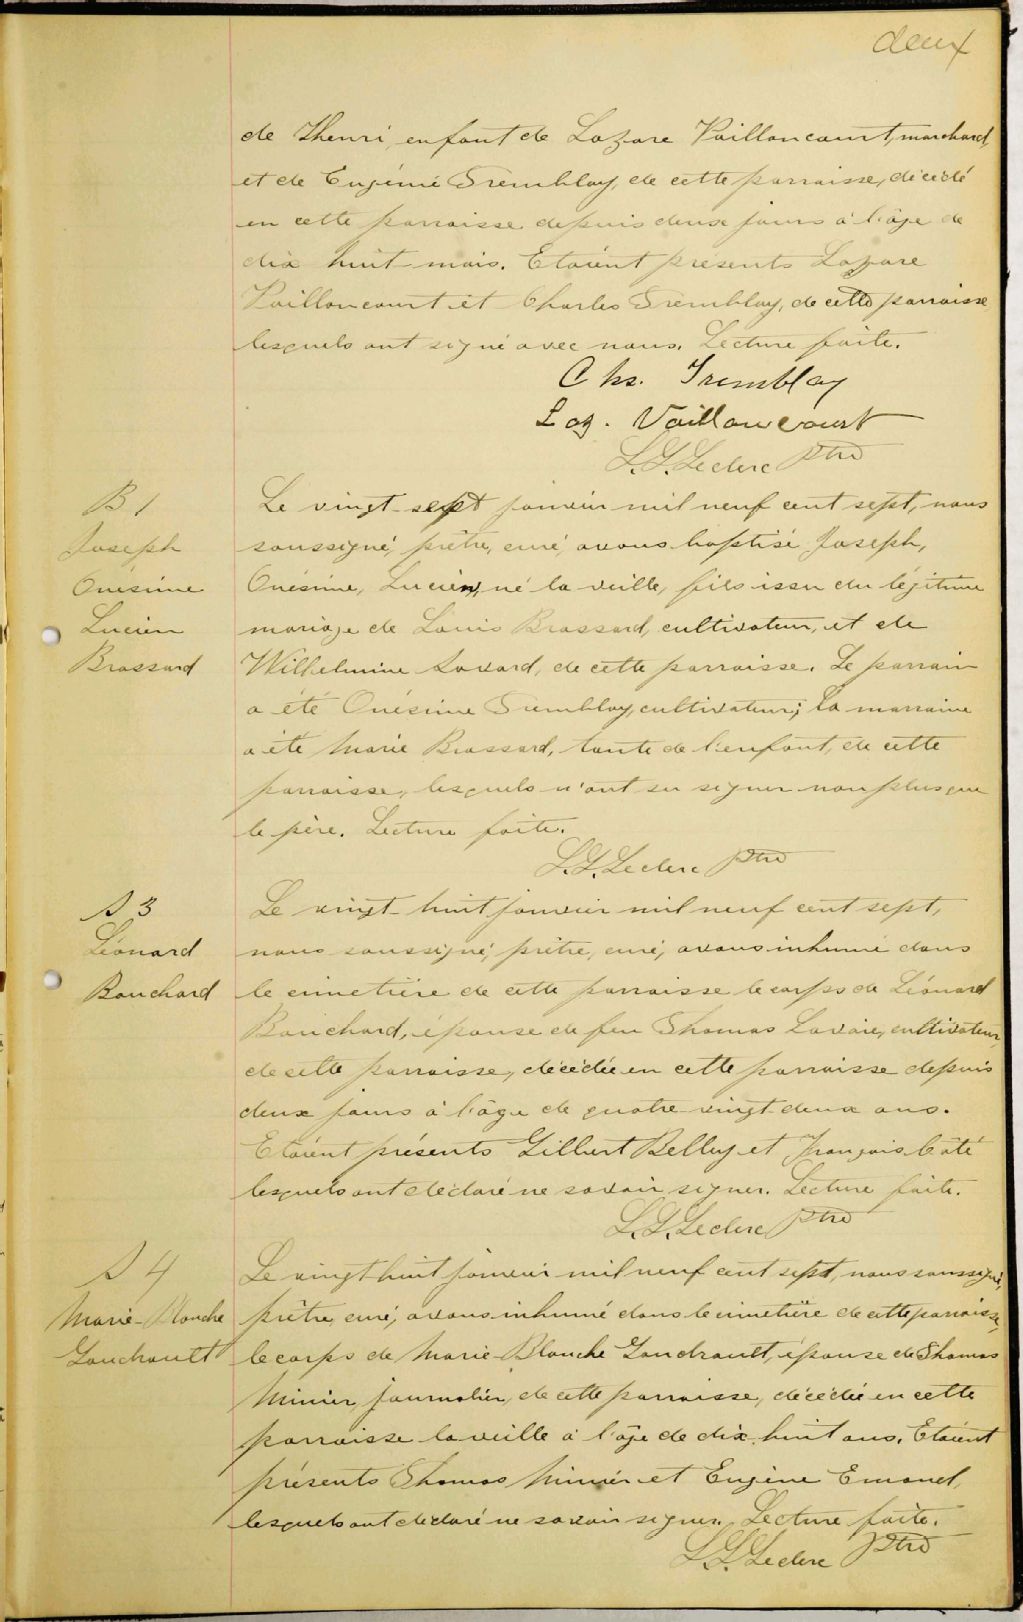 deux
de Thenri, enfant de Lazare Vaillancourt, marchand,
et de Eugénie Tremblay, de cette parroisse, décédé
en cette parroisse depuis deux jours à l'âge de
dix huit mois. Etaient présents Lazare
Vaillancourt et Charles Tremblay, de cette parroisse
lesquels ont signé avec nous. Lecture faite.
Chs. Tremblay
Laz. Vaillancourt
Leclerc Ptre
B 1
Joseph
Onésime
Lucien
Brassard
Le vingt-sept janvier mil neuf cent sept, nous
soussigné, prêtre, curé, avons baptisé Joseph,
Onésime, Lucien, né la veille, fils issu du légitime
mariage de Louis Brassard, cultivateur, et de
Wilhelmine Savard, de cette parroisse. Le parrain
a été Onésime Tremblay, cultivateur; la marraine
a été Marie Brassard, tante de l'enfant, de cette
parroisse, lesquels n'ont su signer non plus que
le père. Lecture faite.
Leclerc Ptre
S 3
Léonard
Bouchard
Le vingt-huit janvier mil neuf cent sept,
nous soussigné, prêtre, curé, avons inhumé dans
le cimetière de cette parroisse le corps de Léonard
Bouchard, épouse de feu Thomas Lavoie, cultivateur,
de cette parroisse, décédée en cette parroisse depuis
deux jours à l'âge de quatre-vingt-deux ans.
Etaient présents Gilbert Belley et François Côté
lesquels ont déclaré ne savoir signer. Lecture faite.
Leclerc Ptre
S 4
Marie-Blanche
Gaudrault
Le vingt huit janvier mil neuf cent sept, nous soussigné,
prêtre, curé, avons inhumé dans le cimetière de cette parroisse,
le corps de Marie-Blanche Gaudrault, épouse de Thomas
Minier, journalier, de cette parroisse, décédée en cette
parroisse la veille à l'âge de dix-huit ans. Etaient
présents Thomas Minier et Eugène Emond,
lesquels ont déclaré ne savoir signer. Lecture faite.
Leclerc Ptre